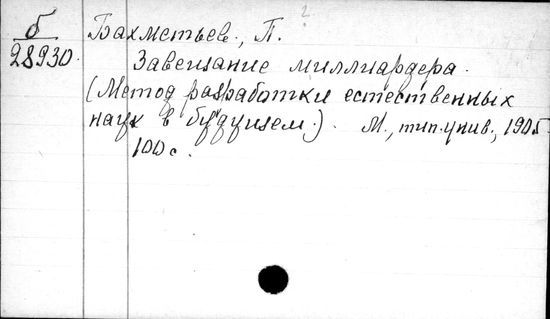 б Бахметьев, П. ?
28930. Завещание миллиардера.
(Метод разработки естественных
наук в будущем.) М., тип. унив., 1905
100 с.